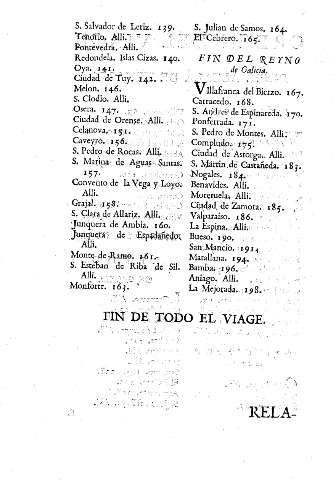 S. Salvador de Leriz. 139.
Tenorio. Alli.
Pontevedra. Alli.
Redondela, Islas Cizas. 140.
Oya. 141.
Ciudad de Tuy. 142.
Melon. 146.
S. Clodio. Alli.
Osera. 147.
Ciudad de Orense. Alli.
Celanova. 151.
Caveyro. 156.
S. Pedro de Rocas. Alli.
S. Marina de Aguas Santas.
157.
Convento de la Vega y Loyo.
Alli.
Grajal. 158.
S. Clara de Allariz. Alli.
Junquera de Ambia. 160.
Junquera de Espadañedo.
Alli.
Monte de Ramo. 161.
S. Esteban de Riba de Sil.
Alli.
Monforte. 163.
S. Julian de Samos. 164.
El Cebrero. 165.
FIN DEL REYNO
de Galicia.
Villafranca del Bierzo. 167.
Carracedo. 168.
S. Andres de Espinareda. 170.
Ponferrada. 171.
S. Pedro de Montes. Alli.
Compludo. 175.
Ciudad de Astorga. Alli.
S. Martin de Castañeda. 183.
Nogales. 184.
Benavides. Alli.
Moreruela. Alli.
Ciudad de Zamora. 185.
Valparaiso. 186.
La Espina. Alli.
Bueso. 190.
San Mancio. 191.
Matallana. 194.
Bamba. 196.
Aniago. Alli.
La Mejorada. 198.
FIN DE TODO EL VIAGE.
RELA-